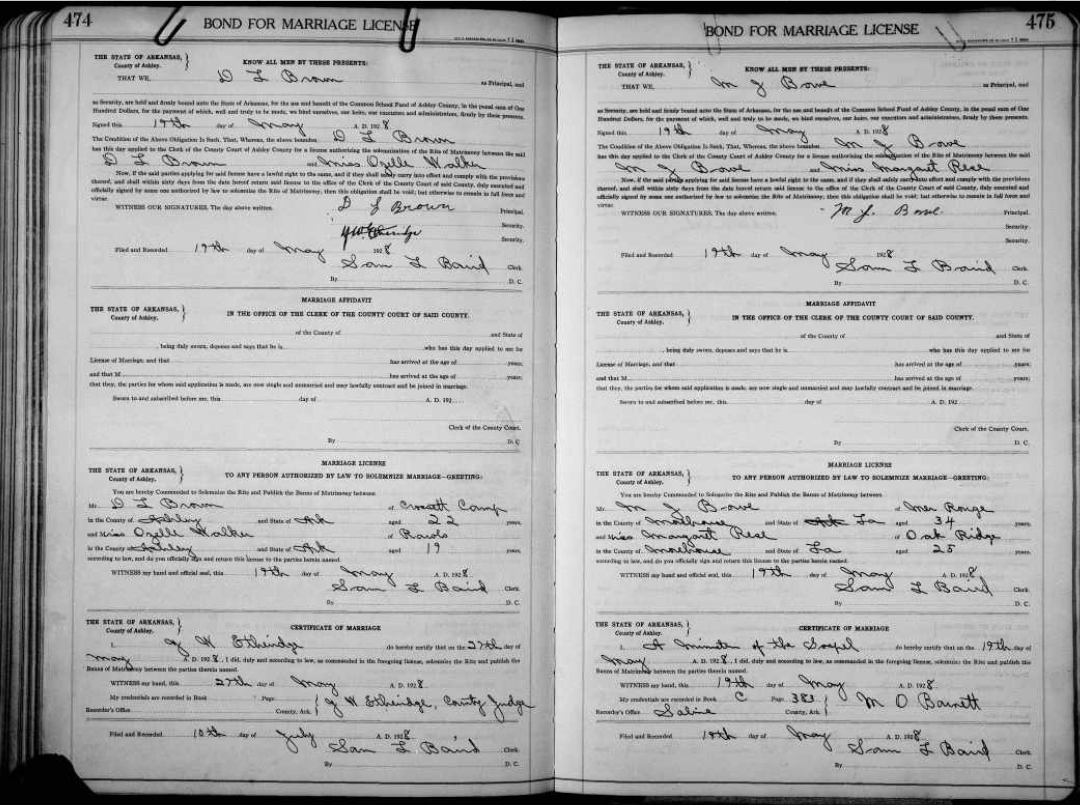 474
BOND FOR MARRIAGE LICENSE
THE STATE OF ARKANSAS,
County of Ashley.
KNOW ALL MEN BY THESE PRESENTS:
THAT WE, D L Brown as Principal, and
as Security, are held and firmly bound unto the State of Arkansas, for the use and benefit of the Common School Fund of Ashley County, in the penal sum of One
Hundred Dollars, for the payment of which, well and truly to be made, we bind ourselves, our heirs, our executors and administrators, firmly by these presents.
Signed this 19th day of May A. D. 1928
The Condition of the Above Obligation Is Such, That, Whereas, the above bounden D L Brown
has this day applied to the Clerk of the County Court of Ashley County for a license authorizing the solemnization of the Rite of Matrimony between the said
D L Brown and Miss Ozelle Walker
Now, if the said parties applying for said license have a lawful right to the same, and if they shall safely carry into effect and comply with the provisions
thereof, and shall within sixty days from the date hereof return said license to the office of the Clerk of the County Court of said County, duly executed and
officially signed by some one authorized by law to solemnize the Rite of Matrimony, then this obligation shall be void; but otherwise to remain in full force and
virtue.
WITNESS OUR SIGNATURES, The day above written. D L Brown Principal.
Security.
Security.
Filed and Recorded 19th day of May 1928
Sam L Baird Clerk
By D. C.
MARRIAGE AFFIDAVIT
THE STATE OF ARKANSAS,
County of Ashley.
IN THE OFFICE OF THE CLERK OF THE COUNTY COURT OF SAID COUNTY.
of the County of and State of
, being duly sworn, deposes and says that he is who has this day applied to me for
License of Marriage, and that has arrived at the age of years,
and that M has arrived at the age of years;
that they, the parties for whom said application is made, are now single and unmarried and may lawfully contract and be joined in marriage.
Sworn to and subscribed before me, this day of A. D. 192
Clerk of the County Court.
By D. C
MARRIAGE LICENSE
THE STATE OF ARKANSAS,
County of Ashley.
TO ANY PERSON AUTHORIZED BY LAW TO SOLEMNIZE MARRIAGE—GREETING:
You are hereby Commended to Solemnize the Rite and Publish the Banns of Matrimony between
Mr. D L Brown of Crossett Camp
in the County of Ashley and State of Ark aged 22 years,
and Miss Ozelle Walker of Rawls
in the County of Ashley and State of Ark aged 19 years,
according to law, and do you officially sign and return this license to the parties herein named.
WITNESS my hand and official seal, this 19th day of May A. D. 1928
Sam L Baird Clerk
By D. C.
THE STATE OF ARKANSAS,
County of Ashley.
CERTIFICATE OF MARRIAGE
I, J W Etheridge do hereby certify that on the 27th day of
May A. D. 1928, I did, duly and according to law, as commended in the foregoing license, solemnize the Rite and publish the
Banns of Matrimony between the parties therein named.
WITNESS my hand, this 27th day of May A. D. 1928.
My credentials are recorded in Book Page
Recorder's Office County, Ark. J W Etheridge, County Judge
Filed and Recorded 10th day of July A. D. 1928
Sam L Baird Clerk
By D. C.
475
BOND FOR MARRIAGE LICENSE
THE STATE OF ARKANSAS,
County of Ashley.
KNOW ALL MEN BY THESE PRESENTS:
THAT WE, M J Bowe as Principal, and
as Security, are held and firmly bound unto the State of Arkansas, for the use and benefit of the Common School Fund of Ashley County, in the penal sum of One
Hundred Dollars, for the payment of which, well and truly to be made, we bind ourselves, our heirs, our executors and administrators, firmly by these presents.
Signed this 19th day of May A. D. 1928
The Condition of the Above Obligation Is Such, That, Whereas, the above bounden M J Bowe
has this day applied to the Clerk of the County Court of Ashley County for a license authorizing the solemnization of the Rite of Matrimony between the said
M J Bowe and Miss Margaret Real
Now, if the said parties applying for said license have a lawful right to the same, and if they shall safely carry into effect and comply with the provisions
thereof, and shall within sixty days from the date hereof return said license to the office of the Clerk of the County Court of said County, duly executed and
officially signed by some one authorized by law to solemnize the Rite of Matrimony, then this obligation shall be void; but otherwise to remain in full force and
virtue.
WITNESS OUR SIGNATURES, The day above written. M. J. Bowe Principal.
Security
Security.
Filed and Recorded 19th day of May 1928
Sam L Baird Clerk
By D. C.
MARRIAGE AFFIDAVIT
THE STATE OF ARKANSAS,
County of Ashley.
IN THE OFFICE OF THE CLERK OF THE COUNTY COURT OF SAID COUNTY.
of the County of and State of
, being duly sworn, deposes and says that he is who has this day applied to me for
License of Marriage, and that has arrived at the age of years,
and that M has arrived at the age of years;
that they, the parties for whom said application is made, are now single and unmarried and may lawfully contract and be joined in marriage.
Sworn to and subscribed before me, this day of A. D. 192
Clerk of the County Court.
By D. C.
MARRIAGE LICENSE
THE STATE OF ARKANSAS,
County of Ashley.
TO ANY PERSON AUTHORIZED BY LAW TO SOLEMNIZE MARRIAGE—GREETING:
You are hereby Commended to Solemnize the Rite and Publish the Banns of Matrimony between
Mr. M J Bowe of Mer Rouge
in the County of Morehouse and State of Ark La aged 34 years,
and Miss Margaret Real of Oak Ridge
in the County of Morehouse and State of La aged 25 years,
according to law, and do you officially sign and return this license to the parties herein named.
WITNESS my hand and official seal, this 19th day of May A. D. 1928
Sam L Baird Clerk
By D. C.
THE STATE OF ARKANSAS,
County of Ashley.
CERTIFICATE OF MARRIAGE
I, A Minister of the Gospel do hereby certify that on the 19th day of
May A. D. 1928, I did, duly and according to law, as commended in the foregoing license, solemnize the Rite and publish the
Banns of Matrimony between the parties therein named.
WITNESS my hand, this 19th day of May A. D. 1928
My credentials are recorded in Book C Page 381
Recorder's Office Saline County, Ark. M O Barnett
Filed and Recorded 19th day of May A. D. 1928
Sam L Baird Clerk
By D. C.